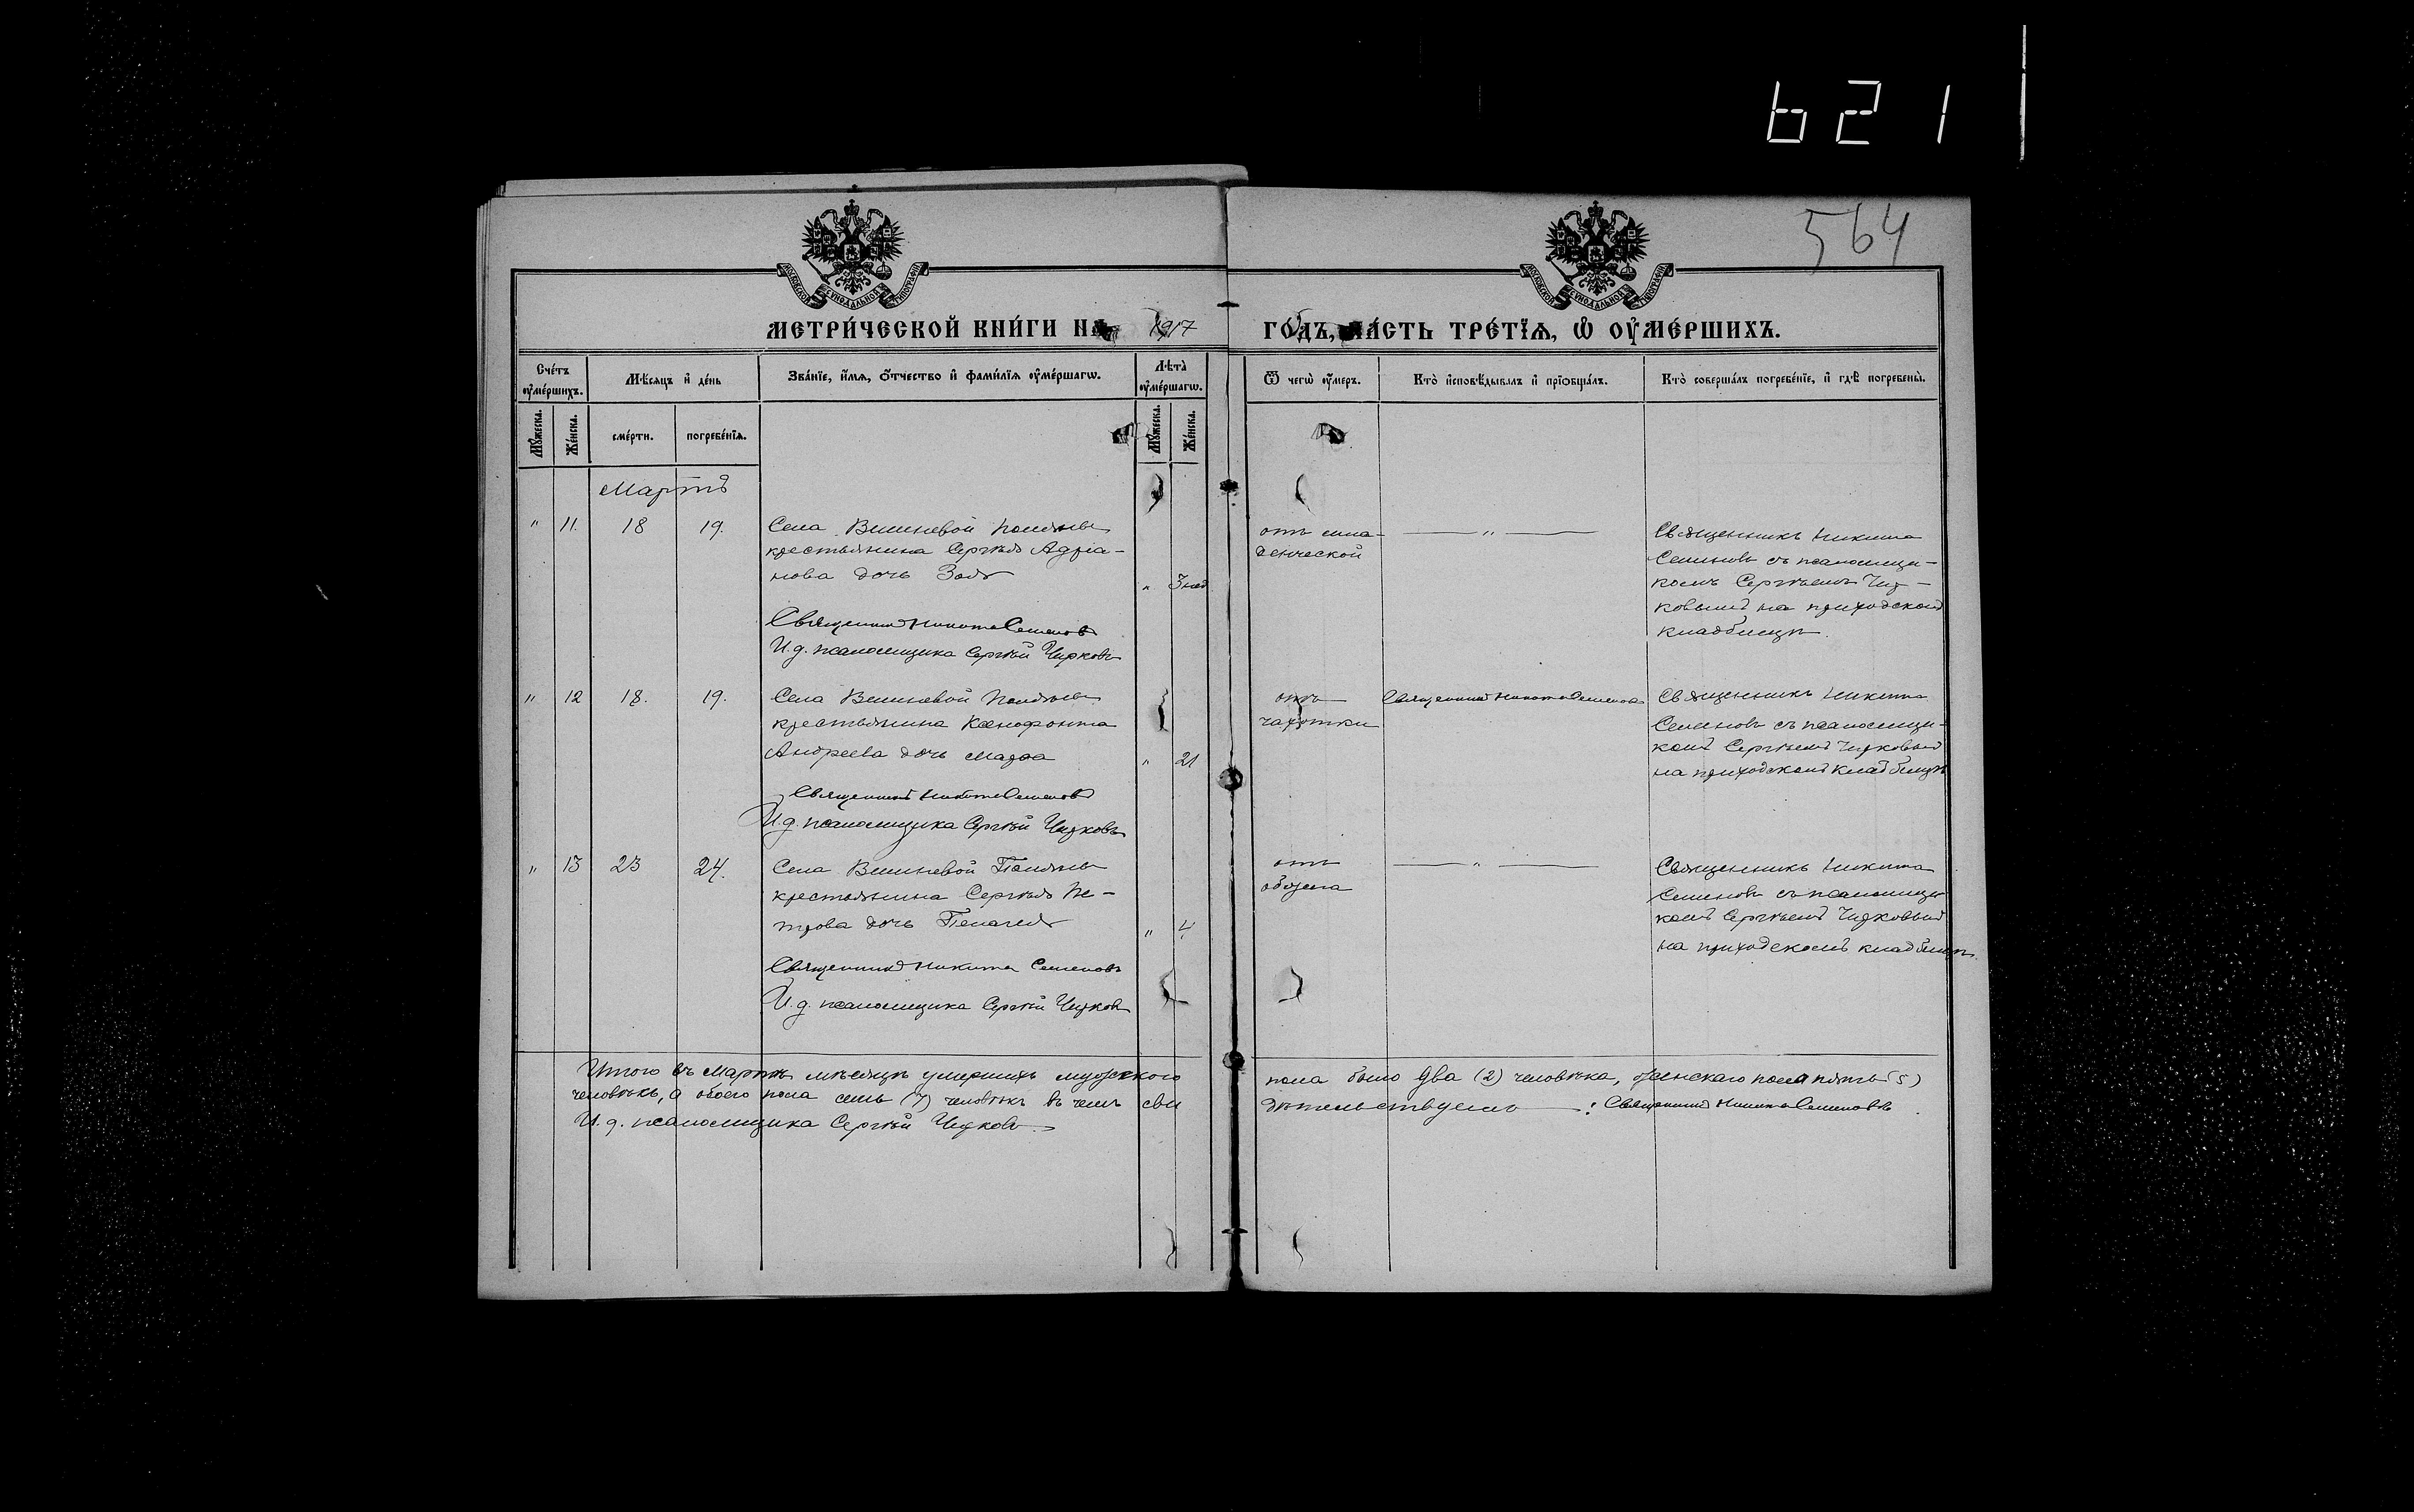 6211
564
МОСКОВСКОЙ СУНОДАЛЬНОЙ ТИПОГРАФІИ
МОСКОВСКОЙ СУНОДАЛЬНОЙ ТИПОГРАФІИ
МЕТРИ́ЧЕСКОЙ КНИ́ГИ НА 1917 ГОДЪ, ЧА́СТЬ ТРЕ́ТЇѦ, Ѡ ОУМЕ́РШИХЪ.
Сче́тъ оуме́ршихъ.
Мѣ́сяцъ и де́нь
Зва́нїе, и́мя, о́тчество и фами́лїя оуме́ршагѡ.
Лѣта̀ оуме́ршагѡ.
Ѿ чегѡ̀ оу́меръ.
Кто̀ исповѣ́дывалъ и прїѡбща́лъ.
Кто̀ соверша́лъ погребе́нїе, и гдѣ̀ погребены̀.
Му́жеска.
Же́нска.
сме́рти.
погребе́нїя.
Му́жеска.
Же́нска.
Мартъ
" 11. 18 19.
Села Вишневой Поляны
крестьянина Сергѣя Адріа-
нова дочь Зоя
" 3 нед
Священникъ Никита Семеновъ
И.д. псаломщика Сергѣй Чирковъ
отъ мла-
денческой
— " —
Священникъ Никита
Семеновъ съ псаломщи-
комъ Сергѣемъ Чир-
ковымъ на приходскомъ
кладбищѣ.
" 12 18. 19.
Села Вишневой Поляны
крестьянина Ксенофонта
Андреева дочь Марѳа
" 21
Священникъ Никита Семеновъ
И.д. псаломщика Сергѣй Чирковъ
отъ
чахотки
Священникъ Никита Семеновъ
Священникъ Никита
Семеновъ съ псаломщи-
комъ Сергѣемъ Чирковымъ
на приходскомъ кладбищѣ
" 13 23 24.
Села Вишневой Поляны
крестьянина Сергѣя Пе-
трова дочь Пелагея
" 4.
Священникъ Никита Семеновъ
И.д. псаломщика Сергѣй Чирковъ
отъ
обжега
— " —
Священникъ Никита
Семеновъ съ псаломщи
комъ Сергѣемъ Чирковымъ
на приходскомъ кладбищѣ.
Итого въ Мартѣ мѣсяцѣ умершихъ мужского пола было два (2) человѣка, женскаго пола пять (5)
человѣкъ, а обоего пола семь (7) человѣкъ въ чемъ сви дѣтельствуемъ : Священникъ Никита Семеновъ.
И.д. псаломщика Сергѣй Чирковъ